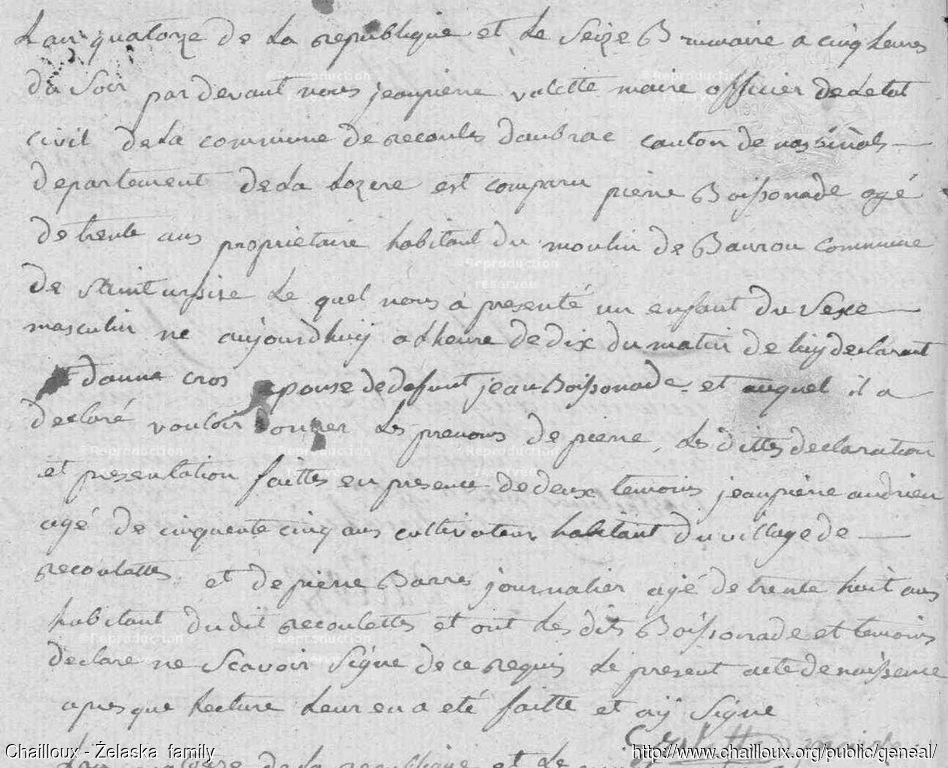 Lan quatorze de La republique et Le Seize Brumaire a cinq heures
du Soir pardevant nous jeanpierre valette maire officier de Letat
civil de La commune de recoules daubrac canton de nasbinals
departement de La Lozere est comparu pierre Boissonade agé
de trente ans proprietaire habitant du moulin de Baurou commune
de Saint urcize Le quel nous a presenté un enfant du Sexe
masculin ne aujourdhuy a Lheure de dix du matin de luy declarant
et danne cros epouse de defunt jean Boissonade et auquel il a
declaré vouloir donner Les prenoms de pierre, Les dittes declaration
et presentation faittes en presence de deux temoins jeanpierre andrieu
agé de cinquente cinq ans cultivateur habitant du village de
recoulettes et de pierre Barres journalier agé de trente huit ans
habitant du dit recoulettes et ont Les dits Boissonade et temoins
declare ne Scavoir Signe de ce requis Le present acte de naissence
apres que Lecture Leur en a eté faitte et aÿ Signe
maire
Lan quatorze de La republique et Le
Reproduction réservée
Chailloux - Żelaska family
http://www.chailloux.org/public/geneal/